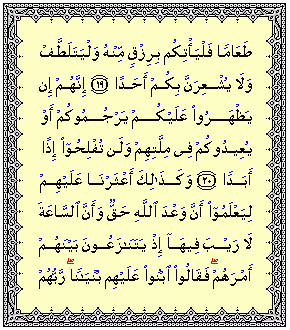 طَعَامًا فَلْيَأْتِكُم بِرِزْقٍ مِّنْهُ وَلْيَتَلَطَّفْ
وَلَا يُشْعِرَنَّ بِكُمْ أَحَدًا ﴿١٩﴾ إِنَّهُمْ إِن
يَظْهَرُوا۟ عَلَيْكُمْ يَرْجُمُوكُمْ أَوْ
يُعِيدُوكُمْ فِى مِلَّتِهِمْ وَلَن تُفْلِحُوٓا۟ إِذًا
أَبَدًا ﴿٢٠﴾ وَكَذَٰلِكَ أَعْثَرْنَا عَلَيْهِمْ
لِيَعْلَمُوٓا۟ أَنَّ وَعْدَ اللَّهِ حَقٌّ وَأَنَّ السَّاعَةَ
لَا رَيْبَ فِيهَآ إِذْ يَتَنَٰزَعُونَ بَيْنَهُمْ
أَمْرَهُمْ ۖ فَقَالُوا۟ ابْنُوا۟ عَلَيْهِم بُنْيَٰنًا ۖ رَّبُّهُمْ